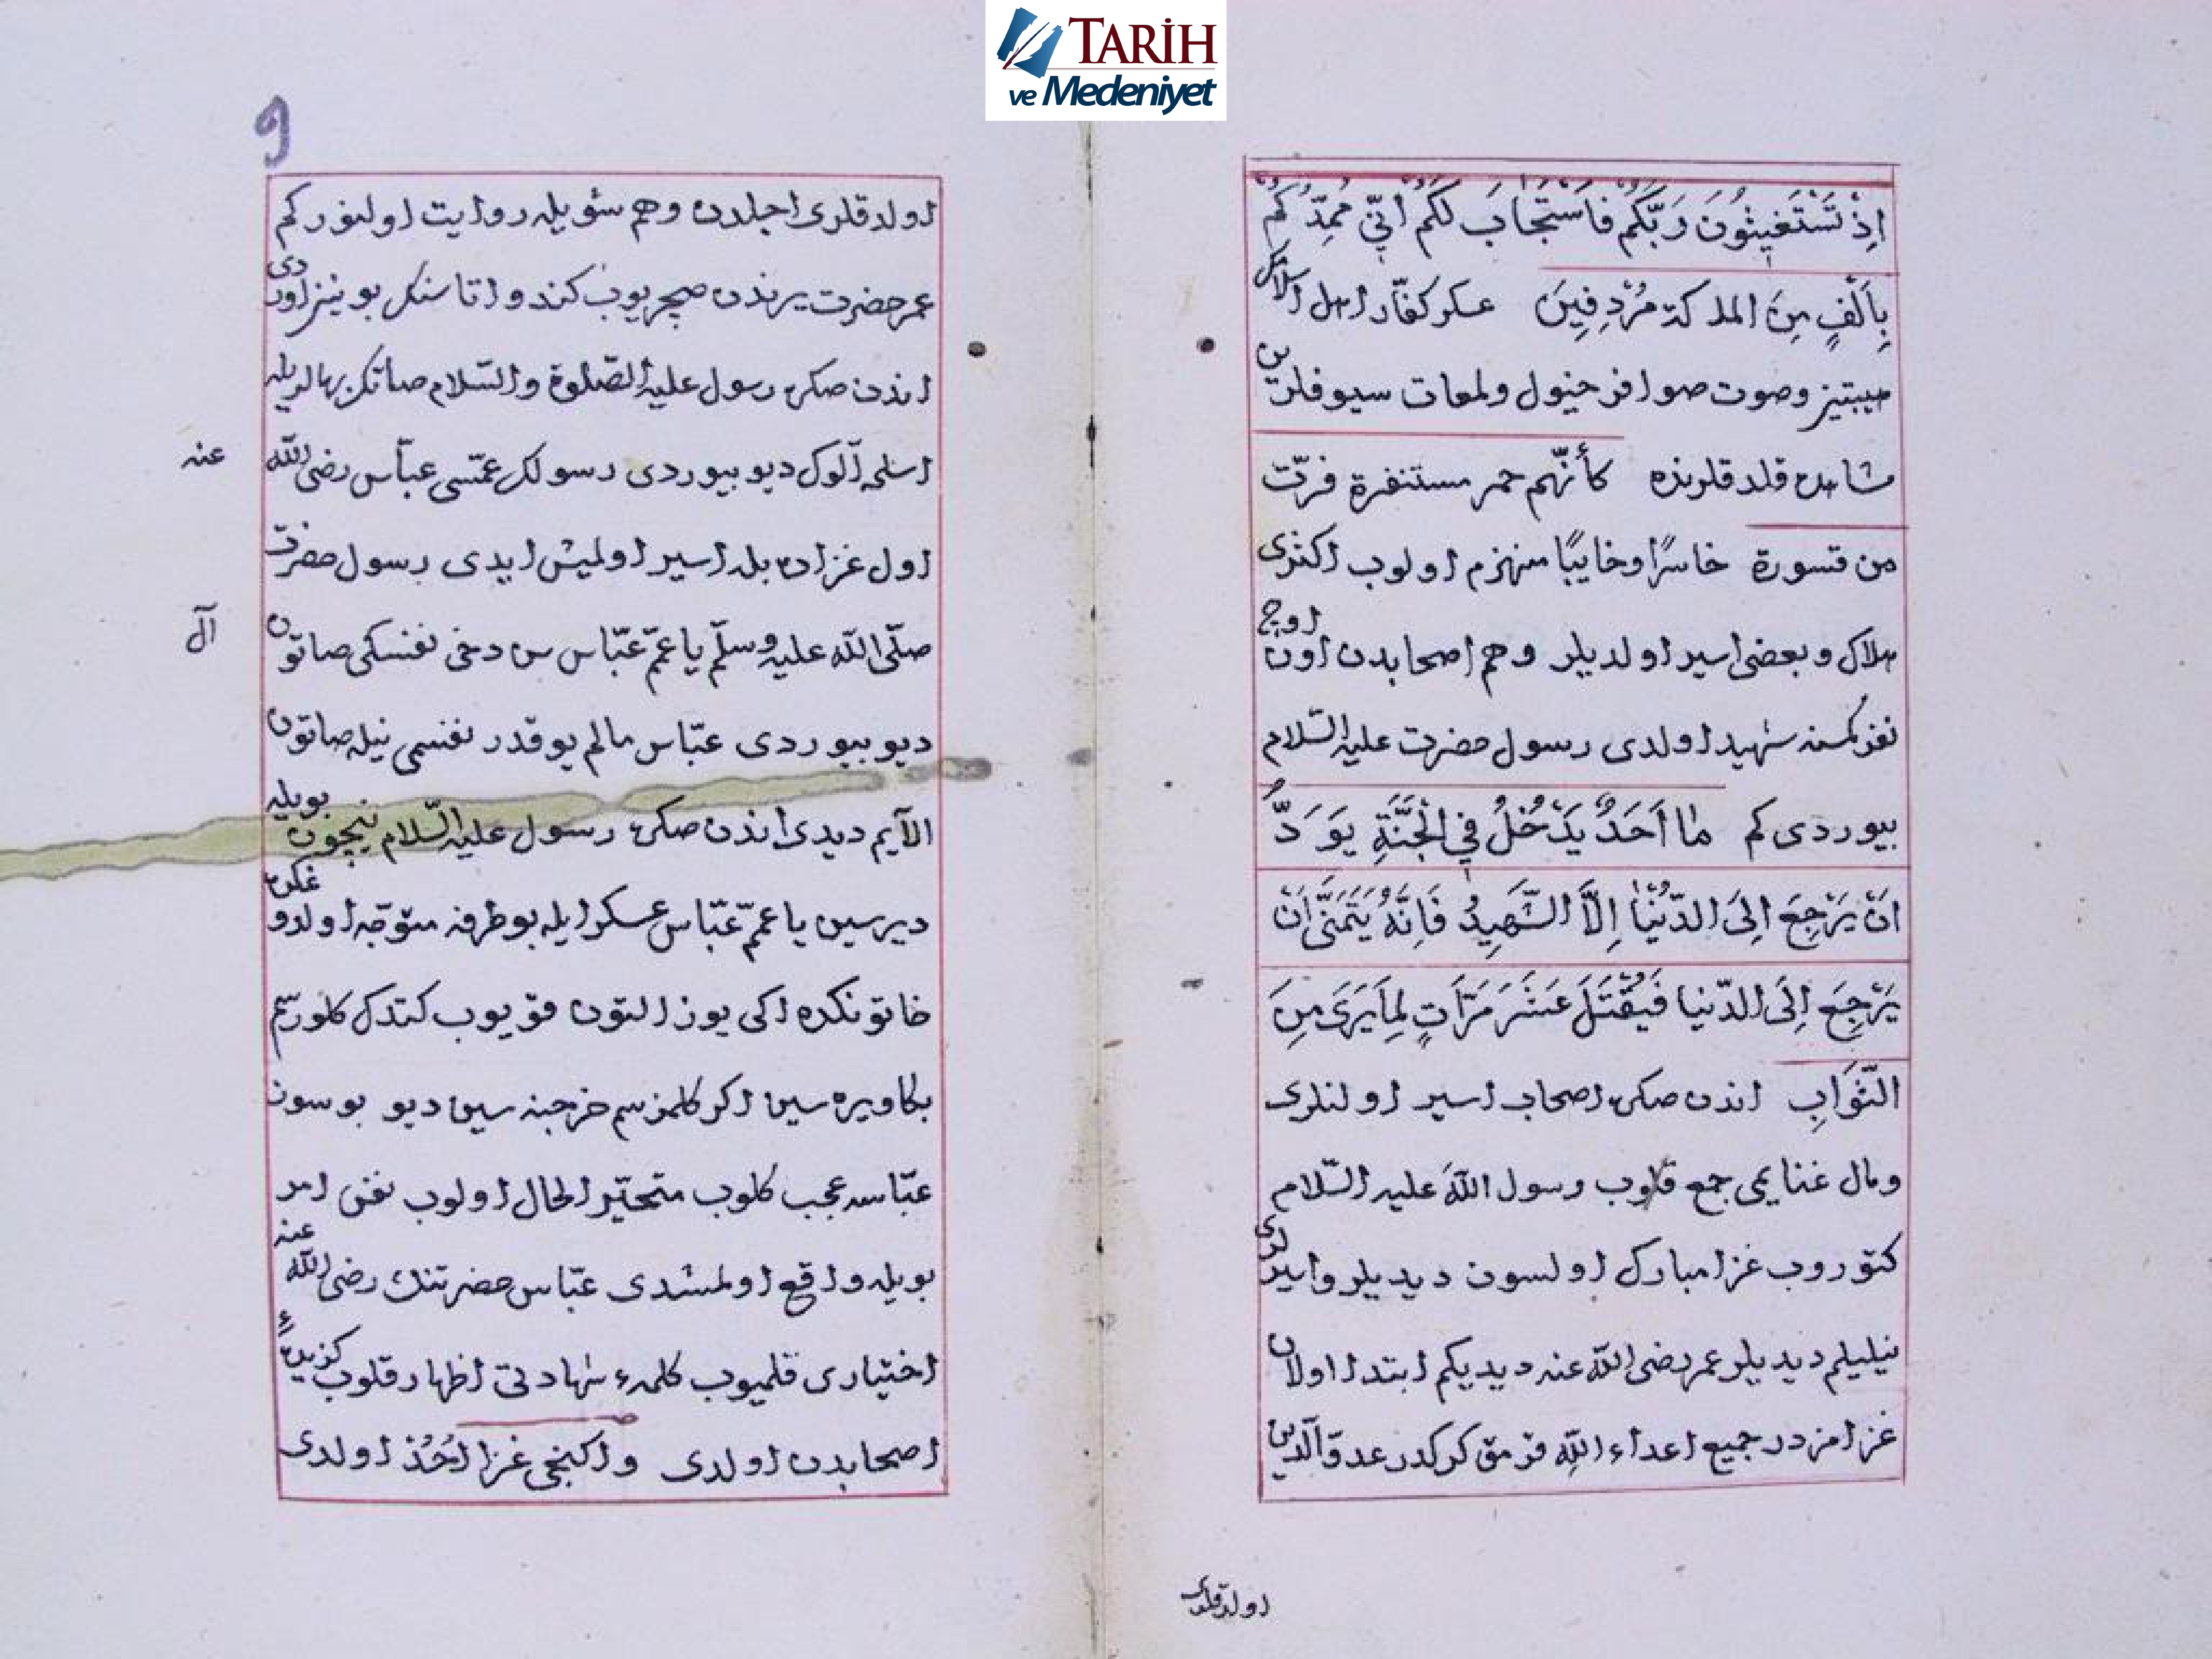 TARİH
ve Medeniyet
اِذْ تَسْتَغِيثُونَ رَبَّكُمْ فَاسْتَجَابَ لَكُمْ اَنِّي مُمِدُّكُمْ
بِاَلْفٍ مِنَ الملئكة مُرْدِفِينَ عسكر كفّار اهل اسلامك
هيبتيز وصوت صوافر خيول ولمعات سيوفلرين
مشاهده قلدقلرنده كأنّهم حمر مستنفرة فرّت
من قسورة خاسرًا وخايبًا منهزم اولوب اكثرى
هلاك وبعضى اسير اولديلر وهم اصحابدن اون اوچ
نفر كمسنه شهيد اولدى رسول حضرت عليه السّلام
بيوردى كم مَا اَحَدٌ يَدْخُلُ فِي الْجَنَّةِ يَوَدُّ
اَنْ يَرْجِعَ اِلَى الدُّنْيَا اِلَّا الشَّهِيدُ فَاِنَّهُ يَتَمَنَّى اَنْ
يَرْجِعَ اِلَى الدّنيا فَيُقْتَلَ عَشْرَ مَرَّاتٍ لِمَا يَرَى مِنَ
الثَّوَابِ اندن صكره اصحاب اسير اولنلرى
ومال غنايمى جمع قلوب رسول اللّه عليه السّلام
كتوروب غزا مبارك اولسون ديديلر واسيرلرى
نيليلم ديديلر عمر رضى اللّه عنه ديديكم ابتدا اولان
غزامزدر جميع اعداء اللّه قرمق كركدر عدوّ الدين
اولدقلرى
9
اولدقلرى اجلدن وهم شويله روايت اولنور كم
عمر حضرت يرندن صچريوب كندو اتاسنك بوينين اوردى
اندن صكره رسول عليه الصّلوة والسّلام صاتك بهالريله
اسلحه آلوك ديو بيوردى رسولك عمّسى عبّاس رضى اللّه عنه
اول غزاده بله اسير اولمش ايدى رسول حضرت
صلّى اللّه عليه وسلّم يا عمّ عبّاس سن دخى نفسكى صاتون آل
ديو بيوردى عبّاس مالم يوقدر نفسمى نيله صاتون
الآيم ديدى اندن صكره رسول عليه السّلام نيچون بويله
ديرسين يا عمّ عبّاس عسكر ايله بو طرفه متوجّه اولدوغكده
خاتونكده اكى يوز التون قويوب كتدك كلورسم
بكا ويره سين اكر كلمزسم خرجينه سين ديو بو سوز
عبّاسه عجب كلوب متحيّر الحال اولوب نفس امر
بويله واقع اولمشدى عبّاس حضرتنك رضى اللّه عنه
اختيارى قلميوب كلمهء شهادتى اظهار قلوب كزيدهء
اصحابدن اولدى واكنجى غزا اُحُد اولدى